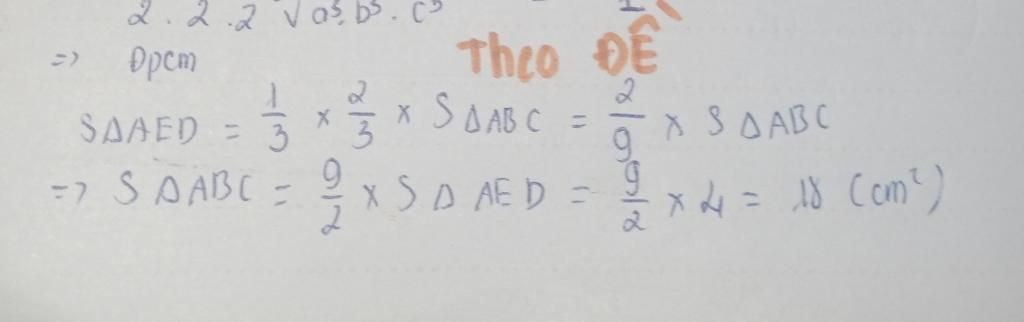 2 . 2 . 2 √a³.b³.c³
=> Đpcm THEO ĐỀ
SΔAED = 1/3 × 2/3 × SΔABC = 2/9 × SΔABC
=> SΔABC = 9/2 × SΔAED = 9/2 × 4 = 18 (cm²)